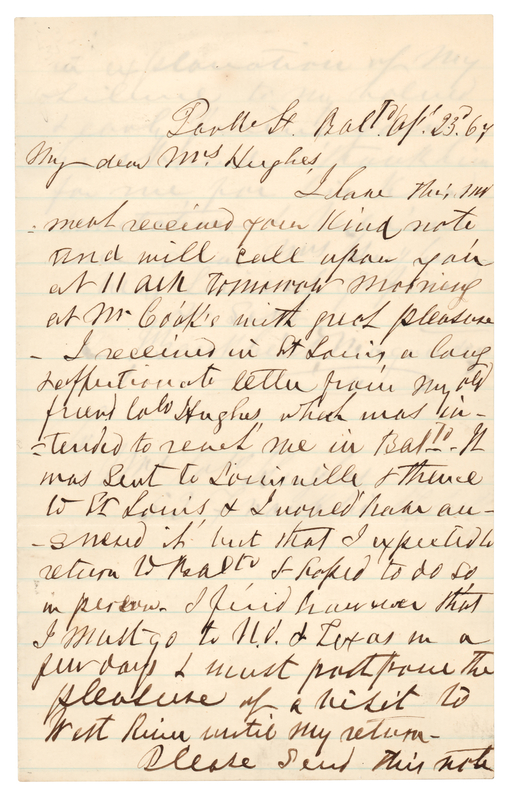 St. Balto. Ap. 23d. 67
My dear Mrs Hughes,
I have this mo
-ment received your kind note
and will call upon you
at 11 Oclk tomorrow morning
at Mr Cook's with great pleasure
- I received in St Louis a long
& affectionate letter from my old
friend Colo Hughes, which was in-
-tended to reach me in Balto. It
was sent to Louisville & thence
to St Louis & I would have an-
-swered it but that I expected to
return to Balto & hoped to do so
in person. I find however that
I must go to N.O. & Texas in a
few days & must postpone the
pleasure of a visit to
West River until my return-
Please send this note